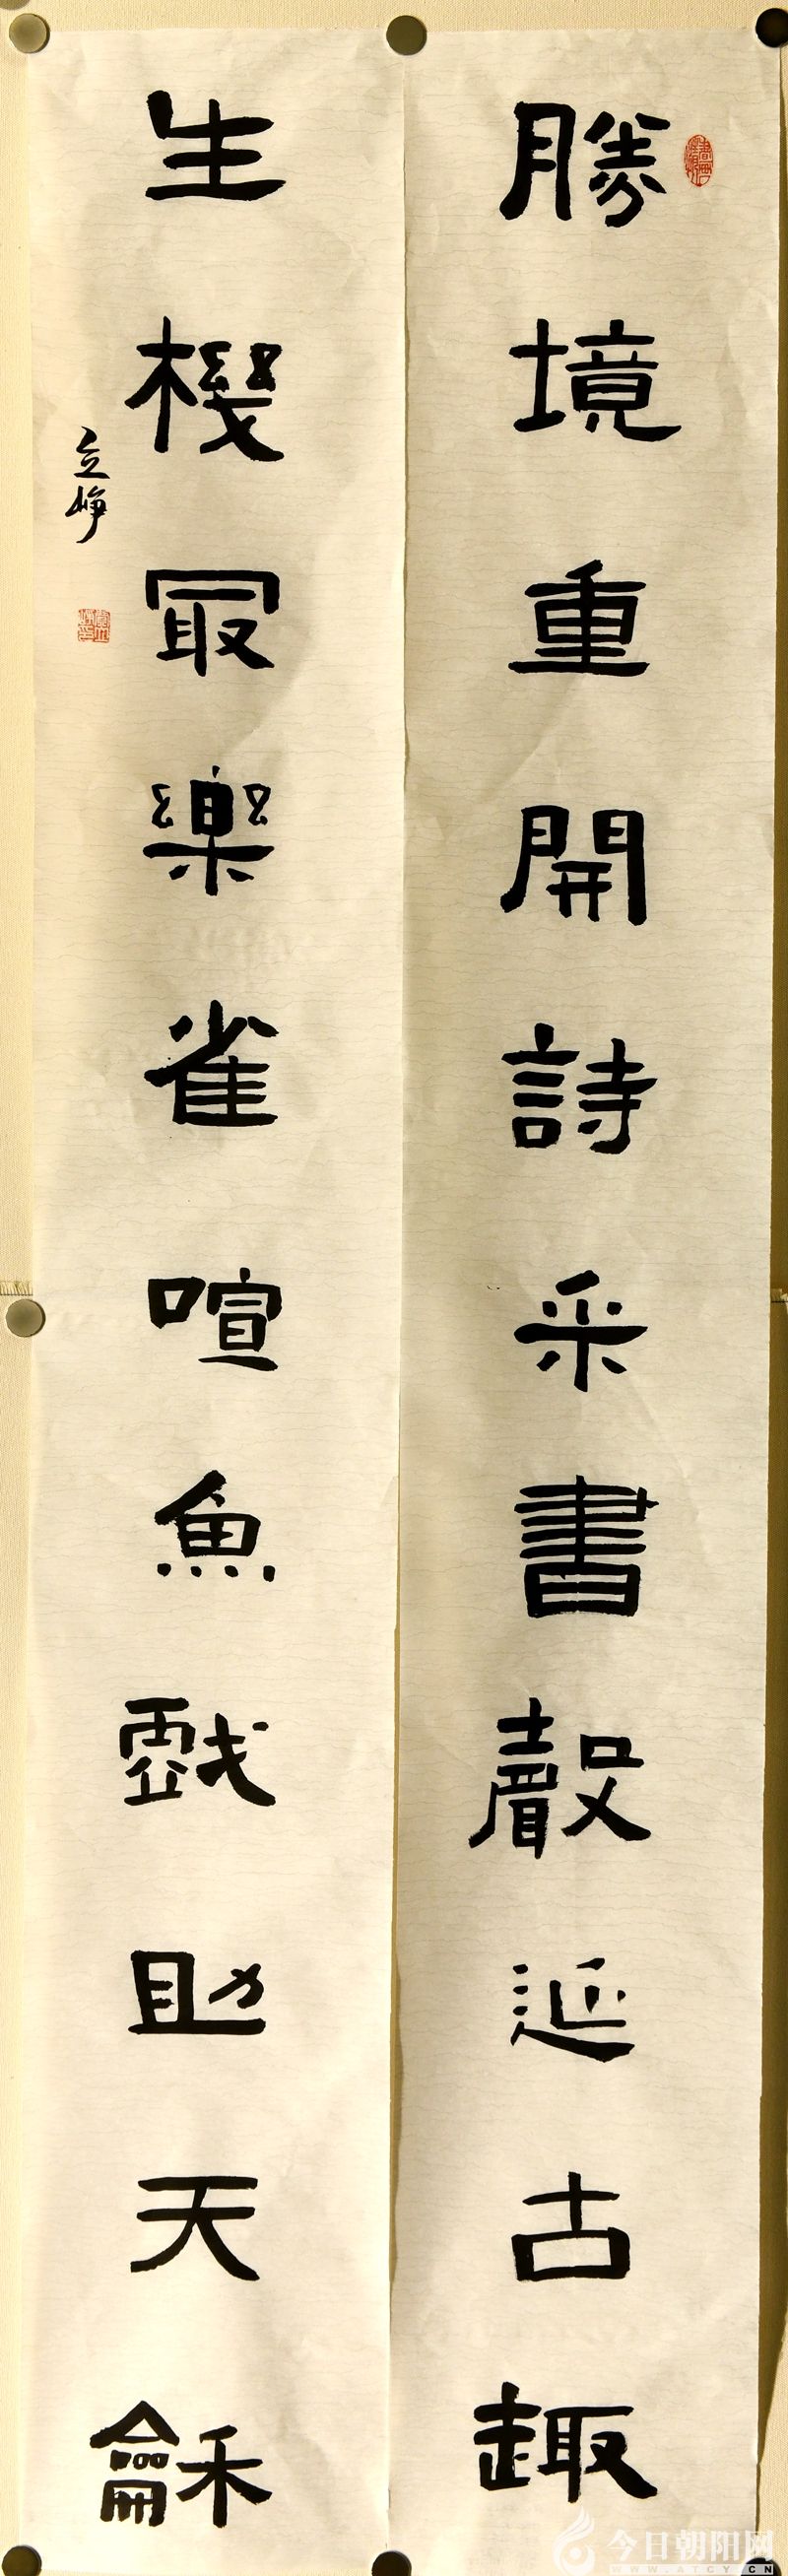 勝境重開詩采書聲延古趣
生機冣樂雀喧魚戲助天龢
立崢
今日朝阳网
WWW.STCY.CN